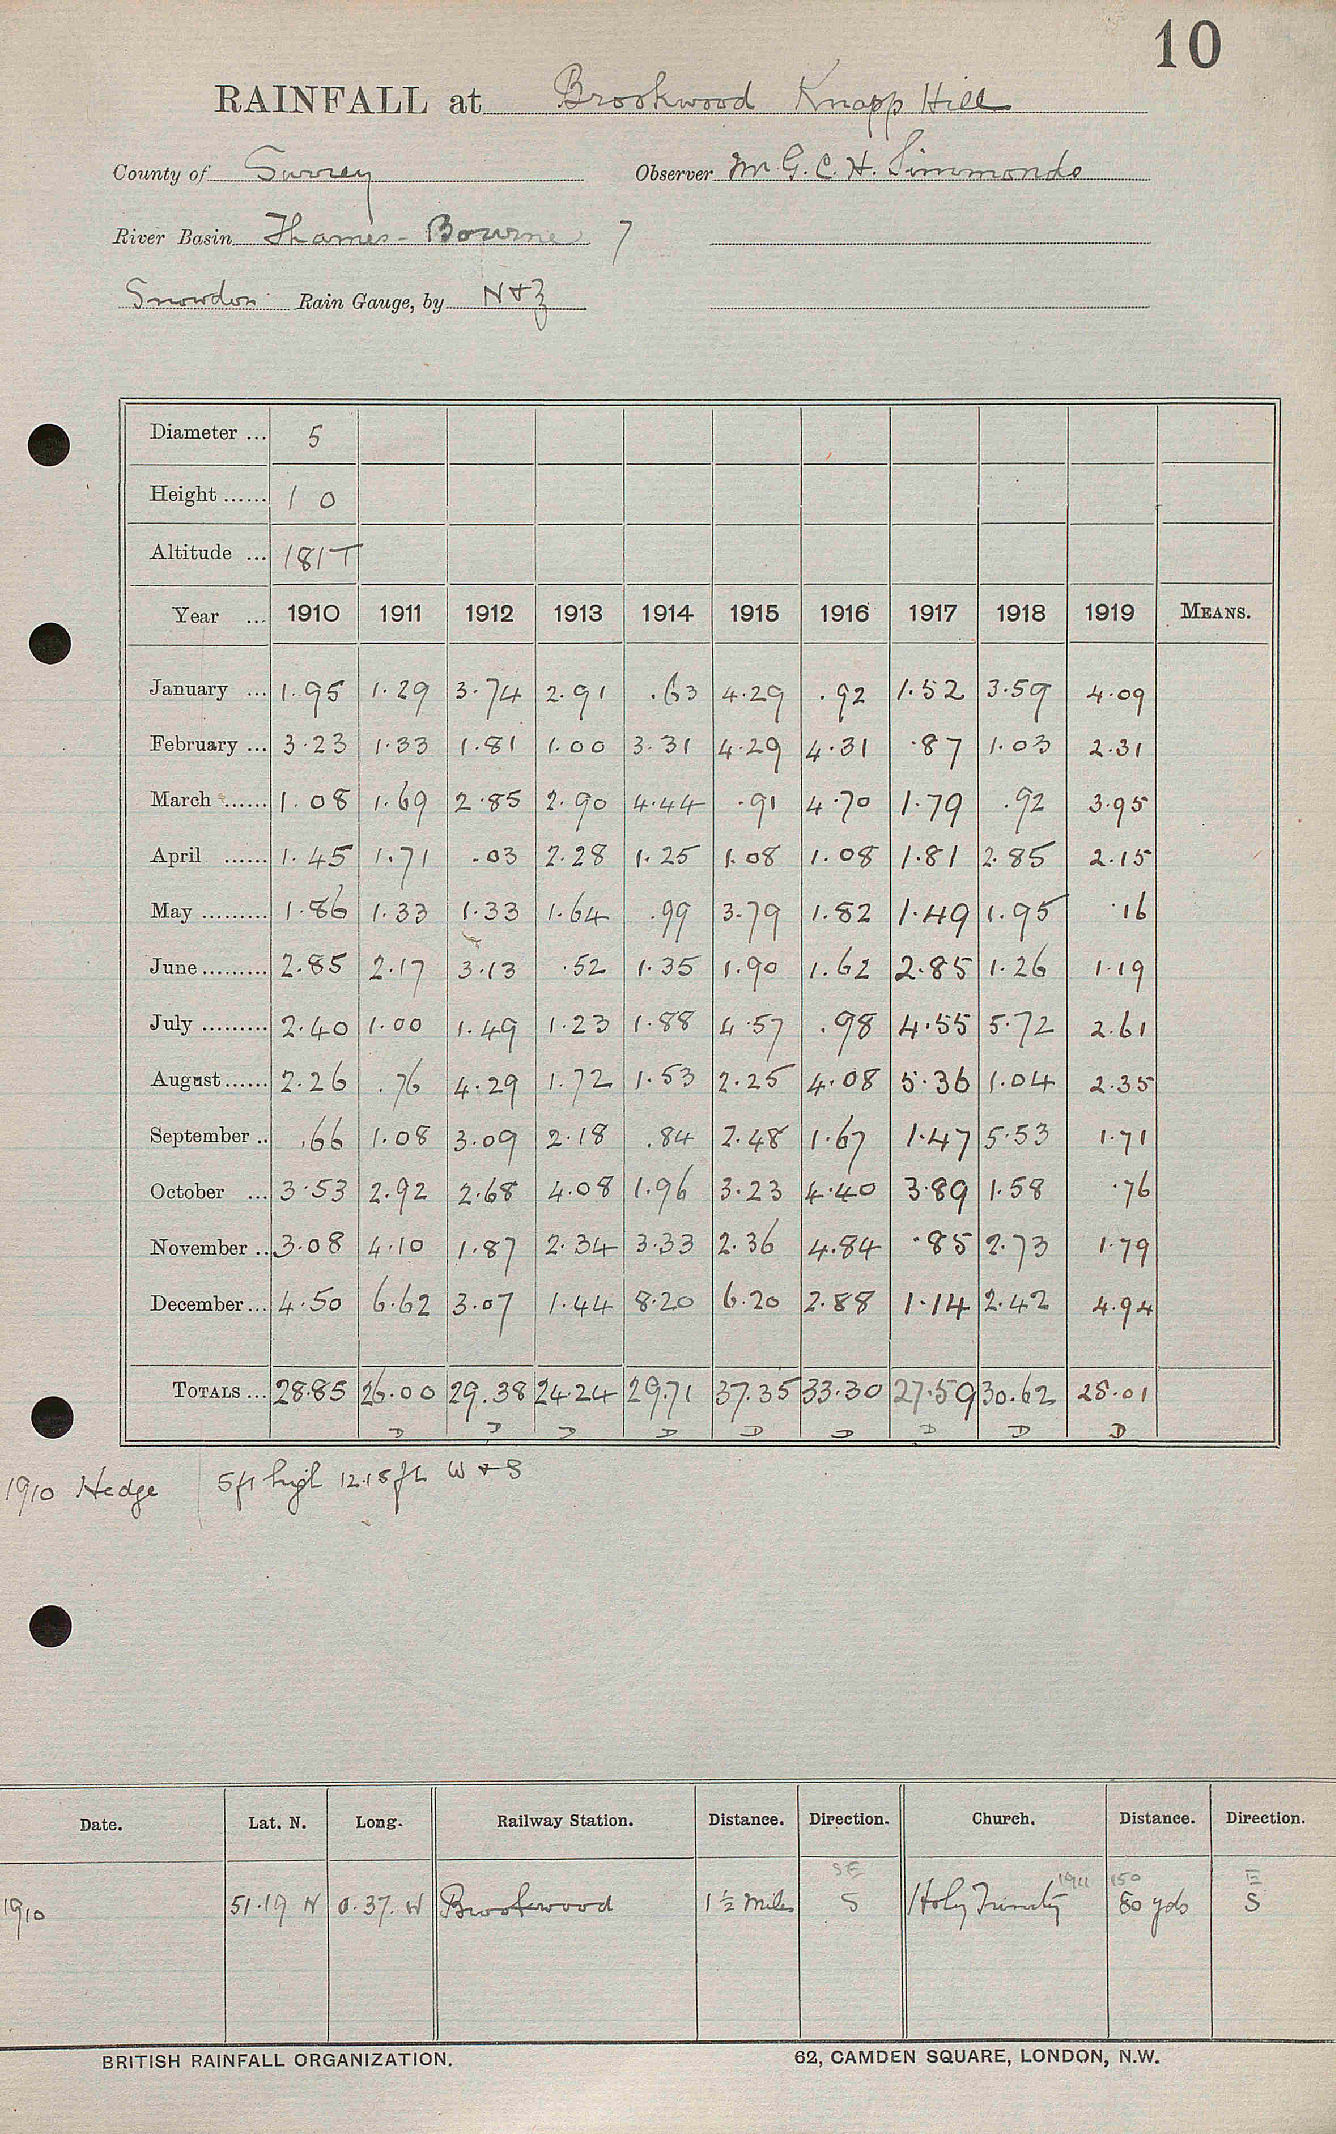 10
RAINFALL at Brookwood Knapp Hill
County of Surrey Observer Mr G. C. H. Simmonds
River Basin Thames - Bourne 7
Snowdon Rain Gauge, by N & Z
Diameter ... 5
Height ...... 1 0
Altitude ... 181 T
Year ... 1910 1911 1912 1913 1914 1915 1916 1917 1918 1919 MEANS.
January ... 1.95 1.29 3.74 2.91 .63 4.29 .92 1.52 3.59 4.09
February ... 3.23 1.33 1.81 1.00 3.31 4.29 4.31 .87 1.03 2.31
March ...... 1.08 1.69 2.85 2.90 4.44 .91 4.70 1.79 .92 3.95
April ...... 1.45 1.71 .03 2.28 1.25 1.08 1.08 1.81 2.85 2.15
May ......... 1.86 1.33 1.33 1.64 .99 3.79 1.82 1.49 1.95 .16
June ......... 2.85 2.17 3.13 .52 1.35 1.90 1.62 2.85 1.26 1.19
July ......... 2.40 1.00 1.49 1.23 1.88 4.57 .98 4.55 5.72 2.61
August ...... 2.26 .76 4.29 1.72 1.53 2.25 4.08 5.36 1.04 2.35
September .. .66 1.08 3.09 2.18 .84 2.48 1.67 1.47 5.53 1.71
October ... 3.53 2.92 2.68 4.08 1.96 3.23 4.40 3.89 1.58 .76
November .. 3.08 4.10 1.87 2.34 3.33 2.36 4.84 .85 2.73 1.79
December ... 4.50 6.62 3.07 1.44 8.20 6.20 2.88 1.14 2.42 4.94
TOTALS ... 28.85 26.00 29.38 24.24 29.71 37.35 33.30 27.59 30.62 28.01
D D D D D D D D D
1910 Hedge 5ft high 12.18 ft W & S
Date. Lat. N. Long. Railway Station. Distance. Direction. Church. Distance. Direction.
SE 1911 150 E
1910 51.19 N 0.37. W Brookwood 1½ miles S Holy Trinity 80 yds S
BRITISH RAINFALL ORGANIZATION. 62, CAMDEN SQUARE, LONDON, N.W.